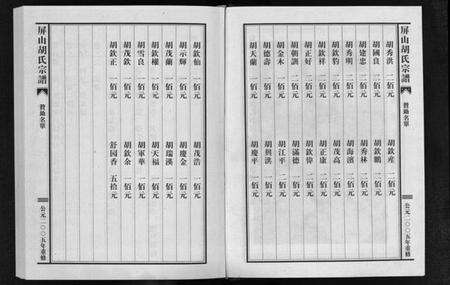 屏山胡氏宗譜
贊助名單
公元二〇〇五年重修
胡秀洪 一佰元
胡國良 一佰元
胡建忠 一佰元
胡秀明 一佰元
胡欽豹 一佰元
胡欽祥 一佰元
胡正好 一佰元
胡朝訓 一佰元
胡金木 一佰元
胡德壽 一佰元
胡天蘭 一佰元
胡欽産 一佰元
胡欽鵬 一佰元
胡秀林 一佰元
胡海濱 一佰元
胡茂高 一佰元
胡正康 一佰元
胡欽偉 一佰元
胡滿德 一佰元
胡江平 一佰元
胡興洪 一佰元
胡慶平 一佰元
胡欽仙 一佰元
胡示輝 一佰元
胡茂蘭 一佰元
胡欽權 一佰元
胡雪良 一佰元
胡茂欽 一佰元
胡欽正 一佰元
胡茂浩 一佰元
胡慶金 一佰元
胡瑞漢 一佰元
胡天福 一佰元
胡軍華 一佰元
胡欽余 一佰元
舒园香 五拾元
屏山胡氏宗譜
贊助名單
公元二〇〇五年重修